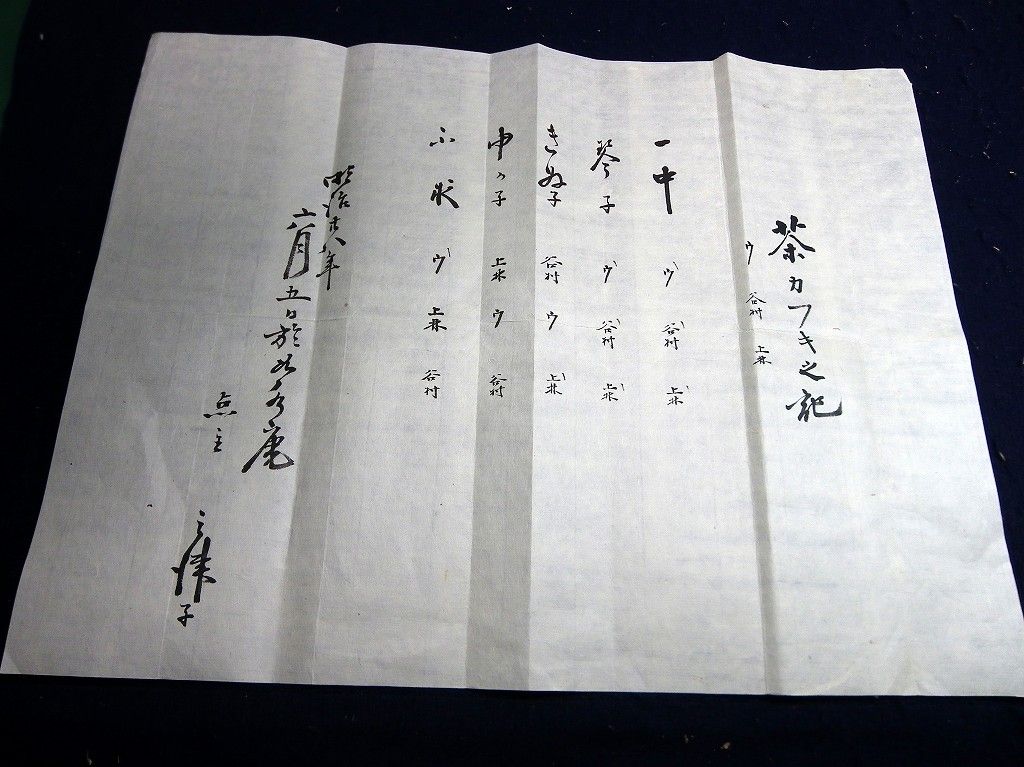 茶カフキ之記
ウ 谷村 上林
一中 ウ 谷村 上林
琴子 ウ 谷村 上林
きぬ子 谷村 ウ 上林
中ノ子 上林 ウ 谷村
不状 ウ 上林 谷村
明治廿八年
六月五日於
庵
点主
津子